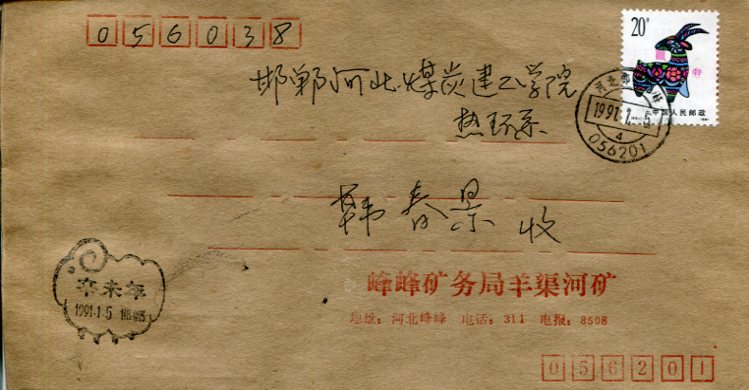 056038
20分
邯郸河北煤炭建工学院
热环系
中国人民邮政
河北
1991.1.5
4
056201
韩春景 收
辛未年
1991.1.5
峰峰矿务局羊渠河矿
地址：河北峰峰 电话：311 电报：8508
056201